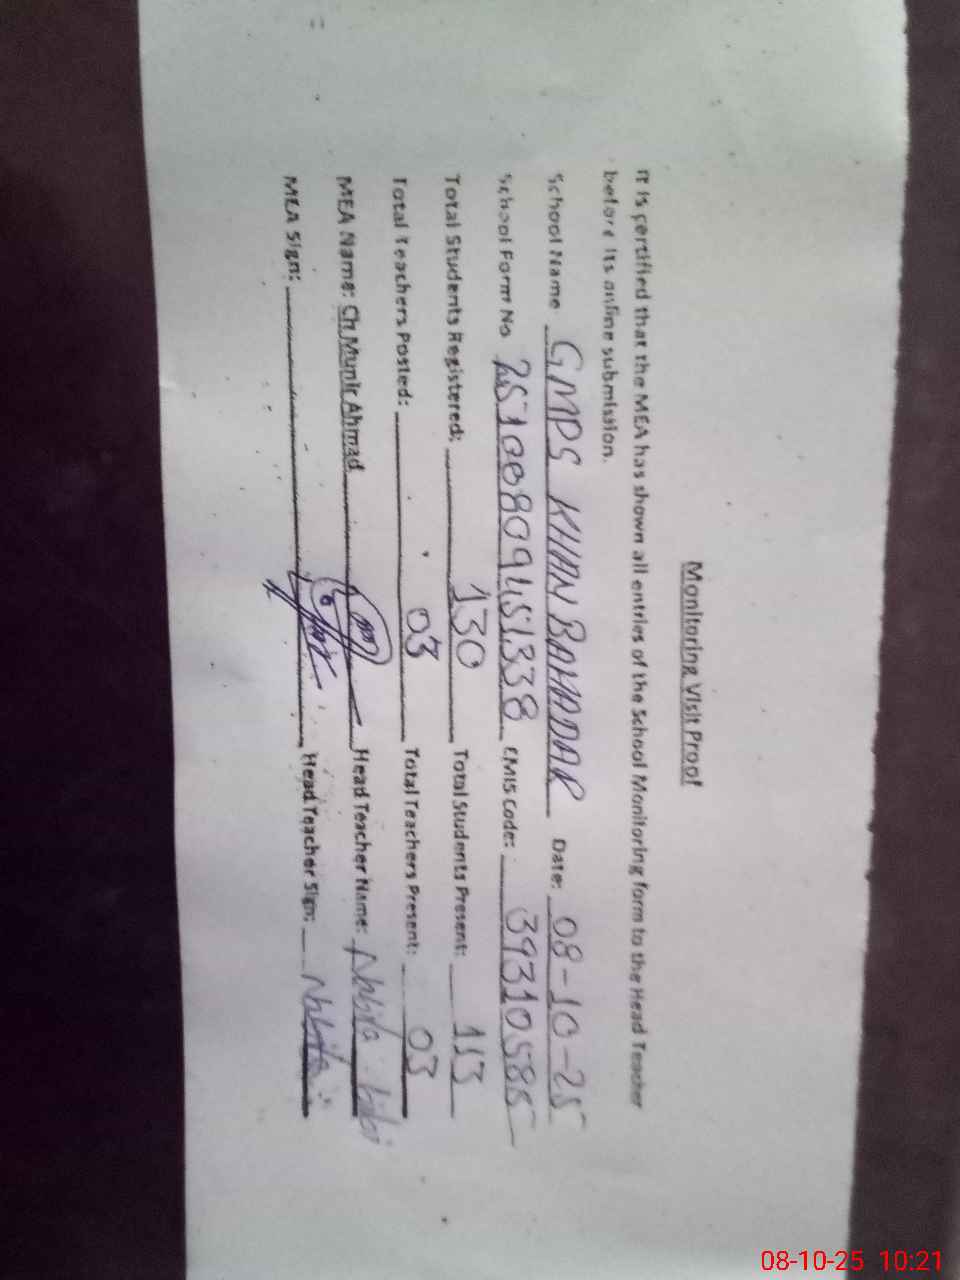 Monitoring Visit Proof
It is certified that the MEA has shown all entries of the School Monitoring form to the Head Teacher
before its online submission.
School Name GMPS KHAN BAHADAR Date: 08-10-25
School Form No 25100809451338 EMIS Code: 39310585
Total Students Registered: 130 Total Students Present: 113
Total Teachers Posted: 03 Total Teachers Present: 03
MEA Name: Ch Munir Ahmad Head Teacher Name: Nabila bibi
MEA Sign: Head Teacher Sign: Nabila
08-10-25 10:21